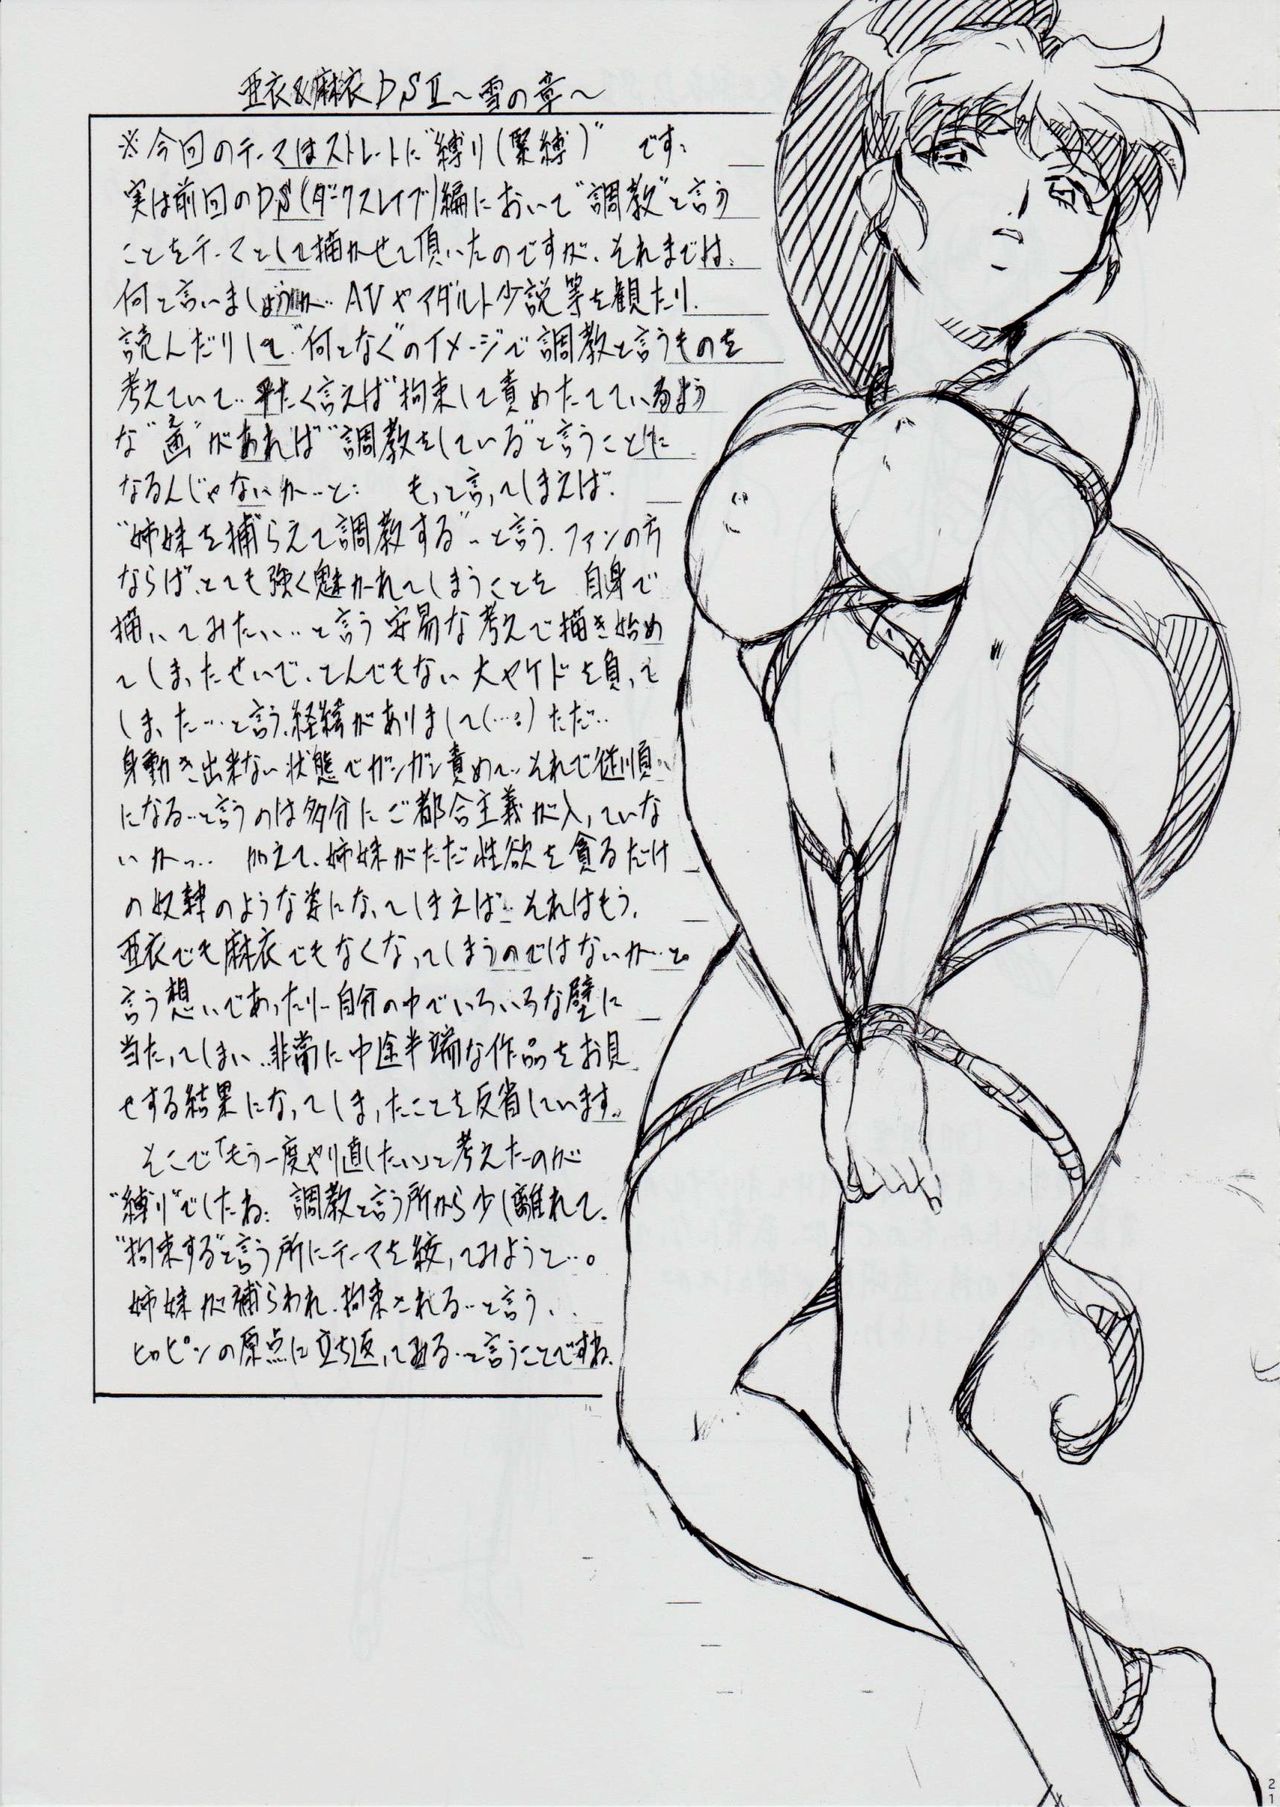 亜衣&麻衣DSⅡ～雪の章～
※今回のテーマはストレートに"縛り(緊縛)"です:
実は前回のDS(ダークスレイブ)編において"調教"と言う
ことをテーマとして描かせて頂いたのですが、それまでは、
何と言いましょうか‥AVやアダルト少説等を観たり、
読んだりして"何となく"のイメージで調教と言うものを
考えていて‥平たく言えば"拘束して責めたてているよう
な"画"があれば"調教をしている"と言うことに
なるんじゃないか…と: もっと言ってしまえば、
"姉妹を捕らえて調教する"…と言う、ファンの方
ならば、とても強く魅かれてしまうことを 自身で
描いてみたい…と言う安易な考えで描き始め
てしまったせいで、とんでもない大ヤケドを負って
しまった…と言う、経緯がありまして(…:) ただ‥
身動き出来ない状態でガンガン責めて‥それで従順
になる…と言うのは多分にご都合主義が入っていな
いかっ… 加えて、姉妹がただ性欲を貪るだけ
の奴隷のような姿になってしまえば‥それはもう、
亜衣でも麻衣でもなくなってしまうのではないか…と。
言う想いであったり‥自分の中でいろいろな壁に
当たってしまい‥非常に中途半端な作品をお見
せする結果になってしまったことを反省しています。
そこで「もう一度やり直したい」と考えたのが
"縛り"でしたね: 調教と言う所から少し離れて、
"拘束する"と言う所にテーマを絞ってみようと…。
姉妹が捕らわれ、拘束される…と言う、、
ヒロピンの原点に立ち返ってみる…と言うことですね。
21